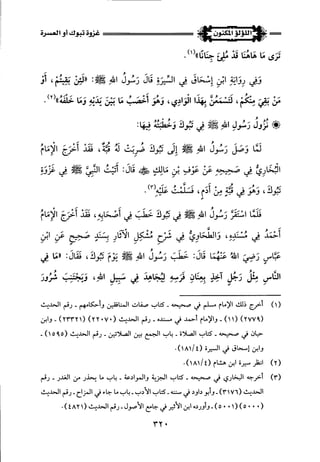 اللؤلؤ المكنون
غزوة تبوك أو العسرة
ترى ما هاهنا قد ملئ جنانا»(١).
وفي رواية ابن إسحاق في السيرة قال رسول الله ﷺ: «لئن بقيتم، أو
من بقي منكم، لتسمعن بهذا الوادي، وهو أخصب ما بين يديه وما خلفه»(٢).
❀ نزول رسول الله ﷺ في تبوك وخطبته فيها:
لما وصل رسول الله ﷺ إلى تبوك ضربت له قبة، فقد أخرج الإمام
البخاري في صحيحه عن عوف بن مالك ﷺ قال: أتيت النبي ﷺ في غزوة
تبوك، وهو في قبة من أدم، فسلمت عليه(٣).
فلما استقر رسول الله ﷺ في تبوك خطب في أصحابه، فقد أخرج الإمام
أحمد في مسنده، والطحاوي في شرح مشكل الآثار بسند صحيح عن ابن
عباس رضي الله عنهما قال: خطب رسول الله ﷺ يوم تبوك، فقال: «ما في
الناس مثل رجل آخذ بعنان فرسه ليجاهد في سبيل الله، ويجتنب شرور
(١) أخرج ذلك الإمام مسلم في صحيحه - كتاب صفات المنافقين وأحكامهم - رقم الحديث
(٢٧٧٩) (١١) - والإمام أحمد في مسنده - رقم الحديث (٢٢٠٧٠) (٢٣٣٢١) - وابن
حبان في صحيحه - كتاب الصلاة - باب الجمع بين الصلاتين - رقم الحديث (١٥٩٥) -
وابن إسحاق في السيرة (٤/١٨١).
(٢) انظر سيرة ابن هشام (٤/١٨١).
(٣) أخرجه البخاري في صحيحه - كتاب الجزية والموادعة - باب ما يحذر من الغدر - رقم
الحديث (٣١٧٦) - وأبو داود في سننه - كتاب الأدب - باب ما جاء في المزاح - رقم الحديث
(٥٠٠٠) (٥٠٠١) - وأورده ابن الأثير في جامع الأصول - رقم الحديث (٤٨٢١).
٣٢٠